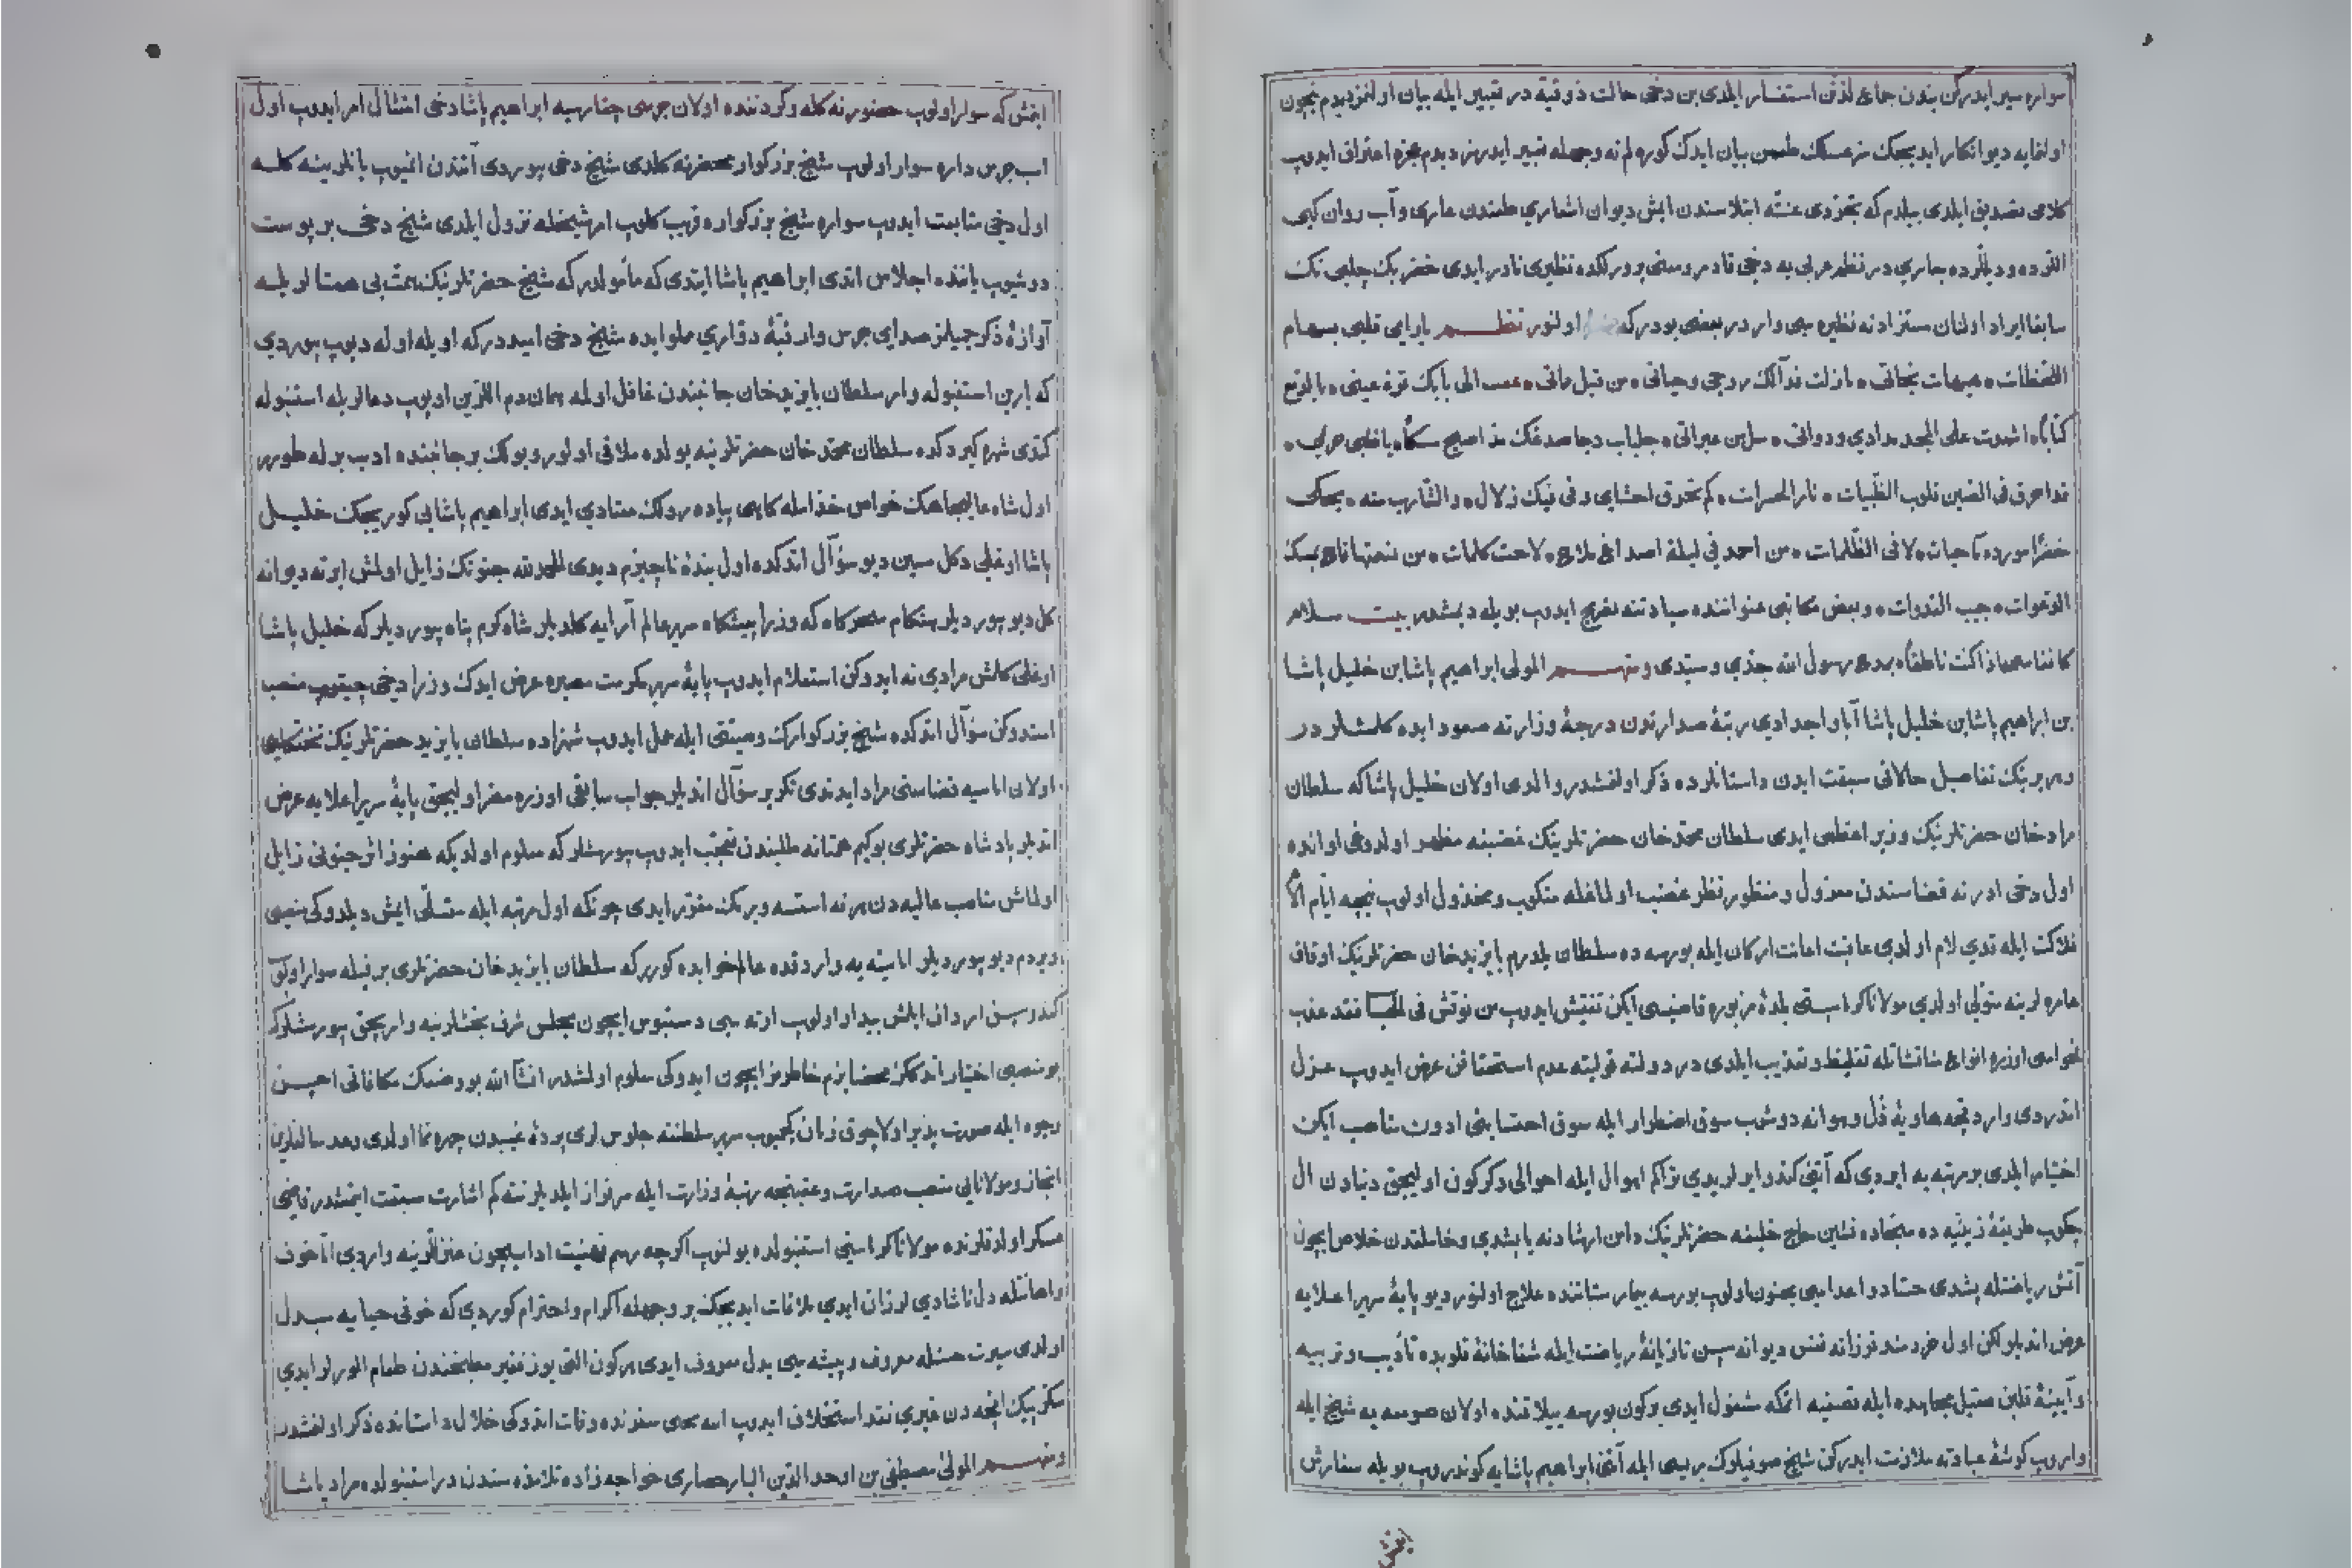 سواره سیر ایدرکن بندن جماع لذتن استفسار ایلدی بن دخی حالت ذوقیه در تعبیر ایله بیان اولنمز دیدم نیچون
اولنمایه دیو انکار ایدیجک بیان ایدک کوره لم نه وجهله تعبیر ایدرسز دیدم عجزه اعتراف ایدوب
کلامی تصدیق ایلدی بیلدم که ابتلاسندن ایمش دیوان اشعاری عاری و آب روان کبی
دیللرده جاری در نظم عربی یه دخی قادر و نظیری نادر ایدی خضر بک چلبی نک
سابقا ایراد اولنان مستزادنه نظیره سی واردر بعضی بودر که اولنور نظم یا رامی قلبی بسهام
اللحظات هیهات نجاتی مازلت فداک روحی وحیاتی من قبل مماتی الی بابک قرة عینی
کتابا اشهدت علی المجد مدادی ودواتی سل من عبراتی جلباب دجا صدغک مذ اصبح یا قلبی
قد احرق فی الصین قلوب الظبیات نار الحسرات کم تحرق احشای وفی فیک زلال والشارب منه
خضرا مورده ماحیات لا فی الظلمات من احد فی لیلة اصداغ ملاح لاحت کلمات من
الدعوات جیب وبعض مکاتبی عنواننده سیادتنه ایدوب بویله دیمشدر بیت سلام
اذا کنت ناطقا بمدح رسول الله جدی وسیدی ومنهم المولی ابراهیم پاشا بن خلیل پاشا
بن ابراهیم پاشا بن خلیل پاشا آبا واجدادی رتبهٔ صدارتدن درجهٔ وزارته صعود ایده کلمشلر در
وهر برینک تفاصیل حالاتی سبقت ایدن داستانلرده ذکر اولنمشدر والدی اولان خلیل پاشا که سلطان
مراد خان حضرتلرینک وزیر اعظمی ایدی سلطان محمد خان حضرتلرینک غضبنه مظهر اولدوغی اوانده
اول دخی ادرنه قضاسندن معزول ومنظور نظر غضب اولماغله منکوب ومخذول اولوب نیچه ایام
فلاکت ایله اولدی عاقبت اعانت ارکان ایله بورسه ده سلطان یلدرم بایزید خان حضرتلرینک اوقاف
عامره لرینه متولی اولدی مولانا کوراستی بلدهٔ مزبوره قاضیسی ایکن تفتیش ایدوب من نوقش فی الحساب فقد عذب
فحواسی اوزره انواع مناقشاتله تغلیظ وتعذیب ایلدی در دولته تولیته عدم استحقاقن عرض ایدوب عزل
اندردی هاویهٔ ذل وهوانه دوشوب سوق اضطرار ایله سوق احتسابنی ادون مناصب ایکن
اختیار ایلدی بر مرتبه یه ایردی که آتنی کندو ایرلریدی تراکم اهوال ایله احوالی دکرکون اولیجق دنیادن ال
چکوب طریقهٔ زینیه ده سجاده نشین حاج خلیفه حضرتلرینک دامن ارشادنه یاپشدی خلاص ایچون
آتش ریاضتله پشدی حساد واعداسی مجنون اولوب بورسه بیمارستاننده علاج اولنور دیو پایهٔ سریر اعلایه
عرض اتدیلر لکن اول خردمند فرزانه نفس دیوانه سین تازیانهٔ ریاضت ایله شفاخانهٔ قلوبده تادیب وتربیه
وآیینهٔ قلبن صیقل مجاهده ایله تصفیه اتمکه مشغول ایدی بر کون بورسه ییلاقنده اولان صومعه یه شیخ ایله
واروب کوشهٔ عبادته ملازمت ایدرکن شیخ صوفیلرک بریسی ایله آتنی ابراهیم پاشایه کوندروب بویله سفارش
ایتمش
ایتمش که سوار اولوب حضورنه کله وکردننده اولان جرسی چقارمیه ابراهیم پاشا دخی امتثال امر ایدوب اول
اسب جرس داره سوار اولوب شیخ بزرکوار محضرنه کلدی شیخ دخی بیوردی آتندن اینوب یانلرینه کله
اول دخی متابعت ایدوب سواره شیخ بزرکواره قریب کلوب امر شیخله نزول ایلدی شیخ دخی بر پوست
دوشیوب یاننده اجلاس اتدی ابراهیم پاشا ایتدی که مأمولدر که شیخ حضرتلرینک همت بی همتالریله
آوازهٔ ذکر جمیلمز صدای جرس وار قبهٔ دواری مملو ایده شیخ دخی امیددر که اویله اوله دیوب بیوردی
که یارین استنبوله وار سلطان بایزید خان جانبندن غافل اولمه همان دم اللرین اوپوب دعالریله استنبوله
کتدی شهره کیردکده سلطان محمد خان حضرتلرینه یولده ملاقی اولور ویولک بر جانبنده ادب برله طورر
اول شاه عالیجاهک خواص خدامله کاهی پیاده یورومک معتادی ایدی ابراهیم پاشایی کوریجک خلیل
پاشا اوغلی دکل سین دیو سؤال اتدکده اول بندهٔ ناچیزم دیدی الحمد لله جنونک زایل اولمش ایرته دیوانه
کل دیو بیوردیلر هنکام سحرکاه که وزرا پیشکاه سریر عالم آرایه کلدیلر شاه کرم پناه بیوردیلر که خلیل پاشا
اوغلی کلمش مرادی نه ایدوکن استعلام ایدوب پایهٔ سریر عرض ایدک وزرا دخی چیقوب منصب
استدوکن سؤال اتدکده شیخ بزرکوارک وصیتی ایله عمل ایدوب شهزاده سلطان بایزید حضرتلرینک تختکاهی
اولان اماسیه قضاسنی مراد ایدندی تکرر سؤال اتدیلر جواب سابقی اوزره مصر اولیجق پایهٔ سریر اعلایه عرض
اتدیلر پادشاه حضرتلری بوکیم طلبندن تعجب ایدوب بیورمشلر که معلوم اولدیکه هنوز اثر جنونی زایل
اولمامش مناصب عالیه دن هر نه استسه ویرمک مقرر ایدی چونکه اول مرتبه ایله متسلی ایمش دیلدوکی منصبی
ویردم دیو بیوردیلر اماسیه یه واردقده عالم خوابده کورر که سلطان بایزید خان حضرتلری بر فیله سوار اولوب
کندوسن اردان ایلمش بیدار اولوب ایرته سی دستبوس ایچون مجلس شرف بخشلرینه واریجق بیورمشلر که
بو منصبی اختیار اتدککز محضا بزم خاطرمز ایچون ایدوکی معلوم اولمشدر انشا الله بو وضعک مکافاتی احسن
وجوه ایله صورت پذیر اولا چوق زمان کچمیوب سریر سلطنته جلوس لری پردهٔ غیبدن چهره نما اولدی وعد سالفلرین
انجاز ومولانایی منصب صدارت وعقبنجه رتبهٔ وزارت ایله سرفراز ایلدیلر نته کم اشارت سبقت ایتمشدر قاضی
عسکر اولدقلرنده مولانا کوراستی استنبولده بولنوب اکرچه رسم تهنیت اداسیچون منزللرینه واردی اما خوف
واهانتله دل ناشادی لرزان ایدی ملاقات ایدیجک بر وجهله اکرام واحترام کوردی که خوفی حیایه مبدل
اولدی سیرت حسنله معروف وپیشه سی بذل معروف ایدی هر کون التی یوز فقیر مطبخندن طعام الورلر ایدی
سکز بیک اقچه دن غیری نقد استخلاف ایدوب سفرنده وفات اتدوکی خلال داستانده ذکر اولنمشدر
ومنهم المولی مصطفی بن اوحد الدین الیارحصاری خواجه زاده تلامذه سندن در استنبولده مراد پاشا